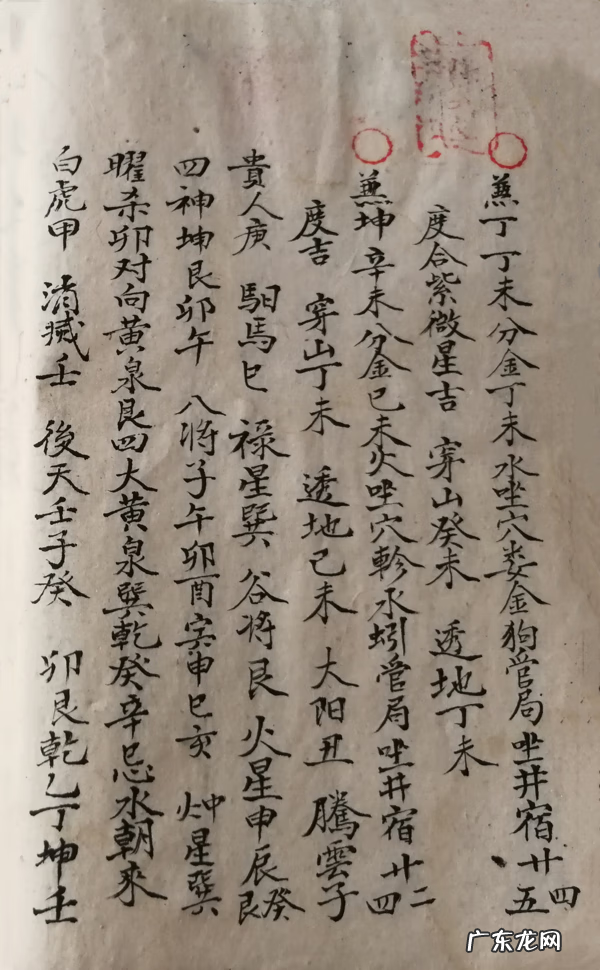 兼丁丁未分金丁未水坐穴娄金狗管局坐井宿廿四五
度合紫微星吉 穿山癸未 透地丁未
兼坤辛未分金己未火坐穴軫水蚓管局坐井宿廿二四
度吉 穿山丁未 透地己未 大阳丑 騰雲子
貴人庚 馹馬巳 祿星巽 谷将艮 火星申辰癸艮
四神坤艮卯午 八将子午卯酉寅申巳亥 灶星巽
曜杀卯对向黄泉艮四大黄泉巽乾癸辛忌水朝來
白虎甲 消滅壬 後天壬子癸 卯艮乾乙丁坤壬
广东龙网